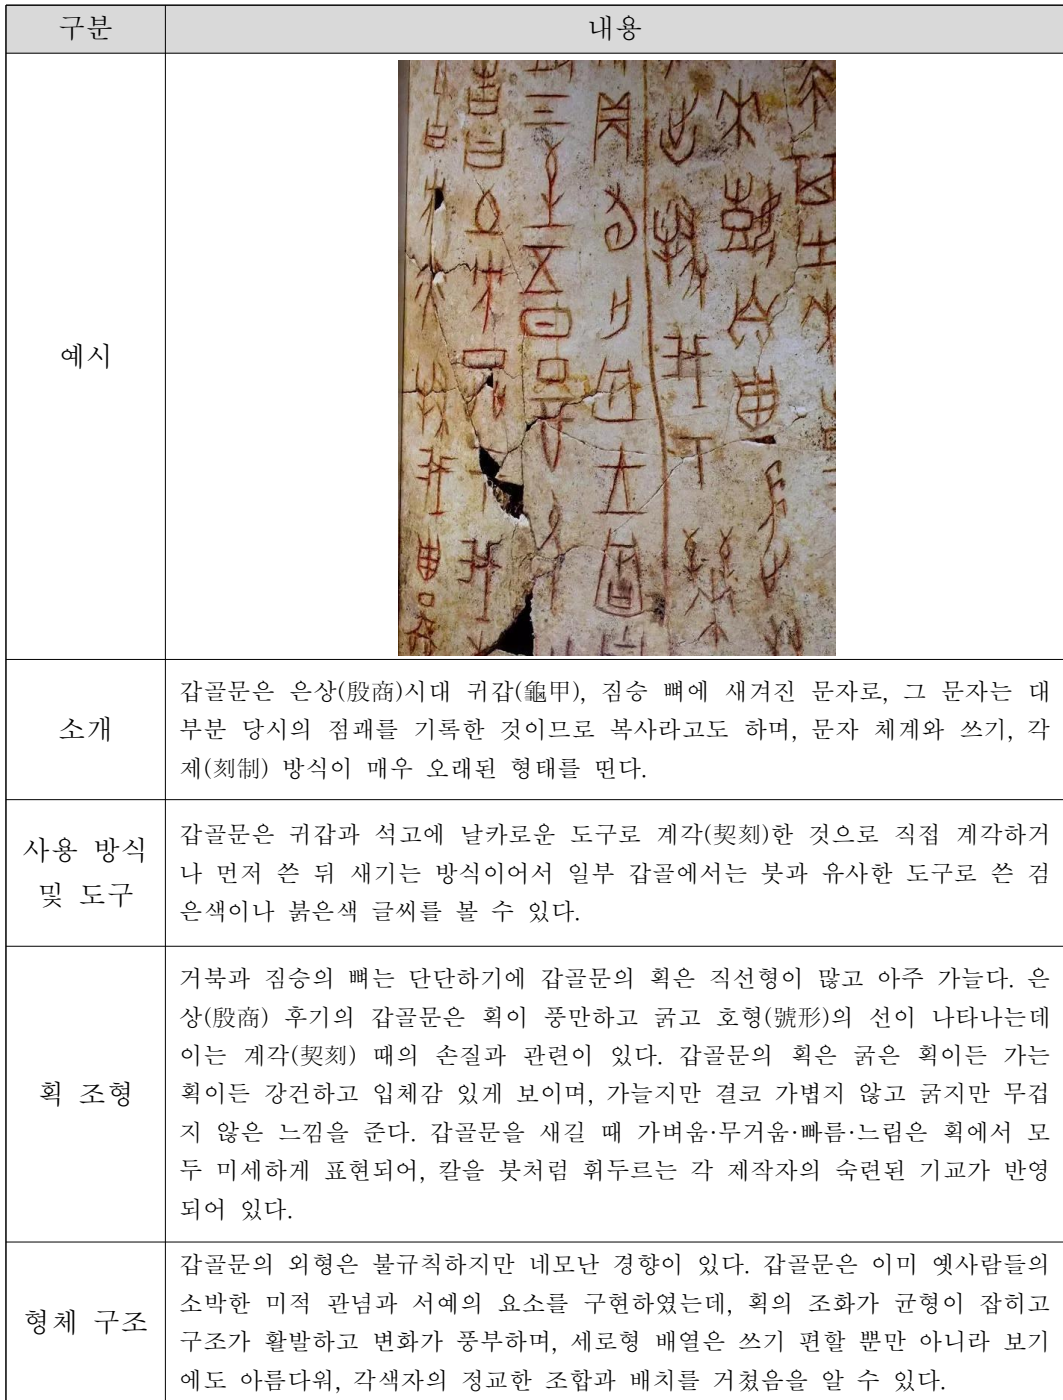 구분
내용
예시
소개
갑골문은 은상(殷商)시대 귀갑(龜甲), 짐승 뼈에 새겨진 문자로, 그 문자는 대
부분 당시의 점괘를 기록한 것이므로 복사라고도 하며, 문자 체계와 쓰기, 각
제(刻制) 방식이 매우 오래된 형태를 띤다.
사용 방식
및 도구
갑골문은 귀갑과 석고에 날카로운 도구로 계각(契刻)한 것으로 직접 계각하거
나 먼저 쓴 뒤 새기는 방식이어서 일부 갑골에서는 붓과 유사한 도구로 쓴 검
은색이나 붉은색 글씨를 볼 수 있다.
획 조형
거북과 짐승의 뼈는 단단하기에 갑골문의 획은 직선형이 많고 아주 가늘다. 은
상(殷商) 후기의 갑골문은 획이 풍만하고 굵고 호형(號形)의 선이 나타나는데
이는 계각(契刻) 때의 손질과 관련이 있다. 갑골문의 획은 굵은 획이든 가는
획이든 강건하고 입체감 있게 보이며, 가늘지만 결코 가볍지 않고 굵지만 무겁
지 않은 느낌을 준다. 갑골문을 새길 때 가벼움·무거움·빠름·느림은 획에서 모
두 미세하게 표현되어, 칼을 붓처럼 휘두르는 각 제작자의 숙련된 기교가 반영
되어 있다.
형체 구조
갑골문의 외형은 불규칙하지만 네모난 경향이 있다. 갑골문은 이미 옛사람들의
소박한 미적 관념과 서예의 요소를 구현하였는데, 획의 조화가 균형이 잡히고
구조가 활발하고 변화가 풍부하며, 세로형 배열은 쓰기 편할 뿐만 아니라 보기
에도 아름다워, 각색자의 정교한 조합과 배치를 거쳤음을 알 수 있다.